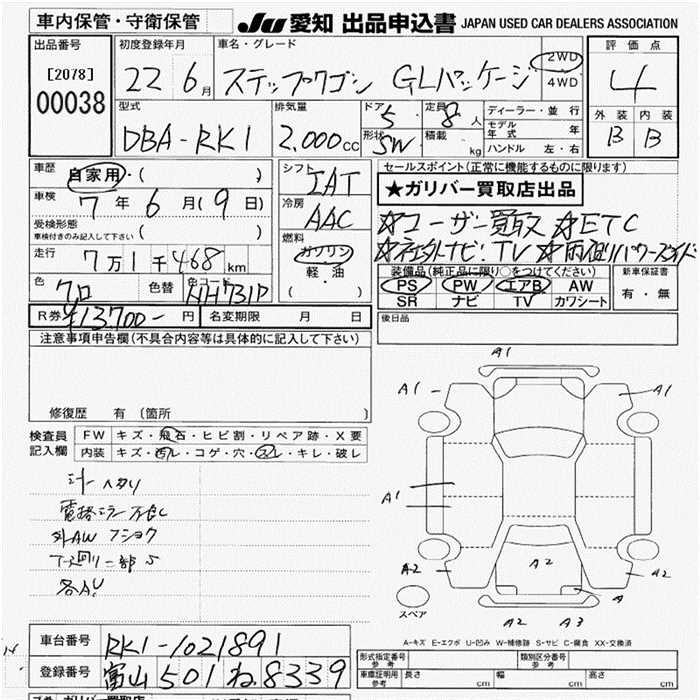 車内保管・守衛保管 JU 愛知 出品申込書 JAPAN USED CAR DEALERS ASSOCIATION
出品番号 初度登録年月 車名・グレード 2WD 評価点
[2078] 22 6月 ステップワゴン GLパッケージ 4WD 4
00038 型式 排気量 ドア 定員 ディーラー・並行 外装 内装
5 8人 モデル年式 年
DBA-RK1 2,000cc 形状 5W 積載 kg ハンドル 左・右 B B
車歴 自家用・( ) シフト セールスポイント(正常に機能するものに限ります)
IAT ★ガリバー買取店出品
車検 7年6月(9日) 冷房
受検形態 AAC ☆ユーザー買取 ☆ETC
車検付きのみ記入して下さい ( ) 燃料
走行 ガソリン ☆社外ナビ・TV ☆両側パワースライド
7万1千468km 軽・油 装備品(純正品に限り○をつけてください) 新車保証書
色 クロ 色替 色コード NH731P ( ) PS PW エアB AW 有・無
SR ナビ TV カワシート
R券 ¥13700- 円 名変期限 月 日 後日品
注意事項申告欄(不具合内容等は具体的に記入して下さい)
A1
A1 A1
修復歴 有(箇所 )
検査員 FW キズ・飛石・ヒビ割・リペア跡・X要
記入欄 内装 キズ・汚レ・コゲ・穴・スレ・キレ・破レ
シートヘタリ
A1
電格ミラー不良
外AWフショク
下廻り一部S
A2 A2 A2
各A.U
スペア A
A2 A3
A-キズ E-エクボ U-凹み W-補修跡 S-サビ C-腐食 XX-交換済
車台番号 RK1-1021891
形式指定番号 参考 類別区分番号 参考
登録番号 富山 501 ね 8339
車庫証明用 参考 長さ cm 幅 cm 高さ cm